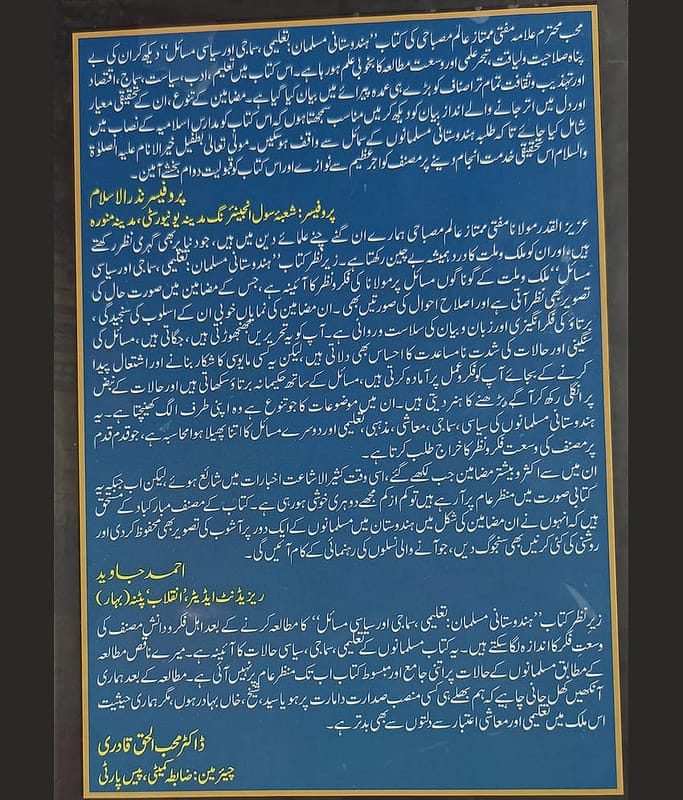 محب محترم علامہ مفتی ممتاز عالم مصباحی کی کتاب ’’ہندوستانی مسلمان: تعلیمی، سماجی اور سیاسی مسائل‘‘ دیکھ کر ان کی بے
پناہ صلاحیت ولیاقت، تبحر علمی اور وسعت مطالعہ کا بخوبی علم ہو رہا ہے۔ اس کتاب میں تعلیم، ادب، سیاست، سماج، اقتصاد
اور تہذیب وثقافت تمام تر اصناف کو بڑے ہی عمدہ پیرائے میں بیان کیا گیا ہے۔ مضامین کے تنوع، ان کے تحقیقی معیار
اور دل میں اتر جانے والے انداز بیان کو دیکھ کر میں مناسب سمجھتا ہوں کہ اس کتاب کو مدارس اسلامیہ کے نصاب میں
شامل کیا جائے تاکہ طلبہ ہندوستانی مسلمانوں کے مسائل سے واقف ہوسکیں۔ مولی تعالیٰ بطفیل خیر الانام علیہ الصلوٰۃ
والسلام اس تحقیقی خدمت انجام دینے پر مصنف کو اجر عظیم سے نوازے اور اس کتاب کو قبولیت دوام بخشے آمین۔
پروفیسر نذر الاسلام
پروفیسر: شعبۂ سول انجینئرنگ مدینہ یونیورسٹی، مدینہ منورہ
عزیز القدر مولانا مفتی ممتاز عالم مصباحی ہمارے ان گنے چنے علمائے دین میں ہیں، جو دنیا پر بھی گہری نظر رکھتے
ہیں اور ان کو ملک وملت کا درد ہمیشہ بے چین رکھتا ہے۔ زیر نظر کتاب ’’ہندوستانی مسلمان: تعلیمی، سماجی اور سیاسی
مسائل‘‘ ملک وملت کے گوناگوں مسائل پر مولانا کی فکر ونظر کا آئینہ ہے، جس کے مضامین میں صورت حال کی
تصویر بھی نظر آتی ہے اور اصلاح احوال کی صورتیں بھی۔ ان مضامین کی نمایاں خوبی ان کے اسلوب کی سنجیدگی،
برتاؤ کی فکر انگیزی اور زبان و بیان کی سلاست وروانی ہے۔ آپ کو یہ تحریریں جھنجھوڑتی ہیں، جگاتی ہیں، مسائل کی
سنگینی اور حالات کی شدت نامساعدت کا احساس بھی دلاتی ہیں، لیکن یہ کسی مایوسی کا شکار بنانے اور اشتعال پیدا
کرنے کے بجائے آپ کو فکر وعمل پر آمادہ کرتی ہیں، مسائل کے ساتھ حکیمانہ برتاؤ سکھاتی ہیں اور حالات کے نبض
پر انگلی رکھ کر آگے بڑھنے کا ہنر دیتی ہیں۔ ان میں موضوعات کا جو تنوع ہے وہ اپنی طرف الگ کھینچتا ہے۔ یہ
ہندوستانی مسلمانوں کی سیاسی، سماجی، معاشی، مذہبی، تعلیمی اور دوسرے مسائل کا اتنا پھیلا ہوا محاسبہ ہے، جو قدم قدم
پر مصنف کی وسعت فکر ونظر کا خراج طلب کرتا ہے۔
ان میں سے اکثر و بیشتر مضامین جب لکھے گئے، اسی وقت کثیر الاشاعت اخبارات میں شائع ہوئے، لیکن اب جبکہ یہ
کتابی صورت میں منظر عام پر آرہے ہیں تو کم از کم مجھے دوہری خوشی ہو رہی ہے۔ کتاب کے مصنف مبارکباد کے مستحق
ہیں کہ انہوں نے ان مضامین کی شکل میں ہندوستان میں مسلمانوں کے ایک دور پر آشوب کی تصویر بھی محفوظ کردی اور
روشنی کی کئی کرنیں بھی سنجوگ دیں، جو آنے والی نسلوں کی رہنمائی کے کام آئیں گی۔
احمد جاوید
ریزیڈنٹ ایڈیٹر، ’انقلاب‘ پٹنہ (بہار)
زیر نظر کتاب ’’ہندوستانی مسلمان: تعلیمی، سماجی اور سیاسی مسائل‘‘ کا مطالعہ کرنے کے بعد اہل فکر ودانش مصنف کی
وسعت فکر کا اندازہ لگا سکتے ہیں۔ یہ کتاب مسلمانوں کے تعلیمی، سماجی، سیاسی حالات کا آئینہ ہے۔ میرے ناقص مطالعہ
کے مطابق مسلمانوں کے حالات پر اتنی جامع اور مبسوط کتاب اب تک منظر عام پر نہیں آئی ہے۔ مطالعہ کے بعد ہماری
آنکھیں کھل جانی چاہیے کہ ہم بھلے ہی کسی منصب صدارت وامارت پر ہو یا سید، شیخ، خاں بہادر ہوں، مگر ہماری حیثیت
اس ملک میں تعلیمی اور معاشی اعتبار سے دلتوں سے بھی بدتر ہے۔
ڈاکٹر محب الحق قادری
چیئرمین: ضابطہ کمیٹی، پیس پارٹی